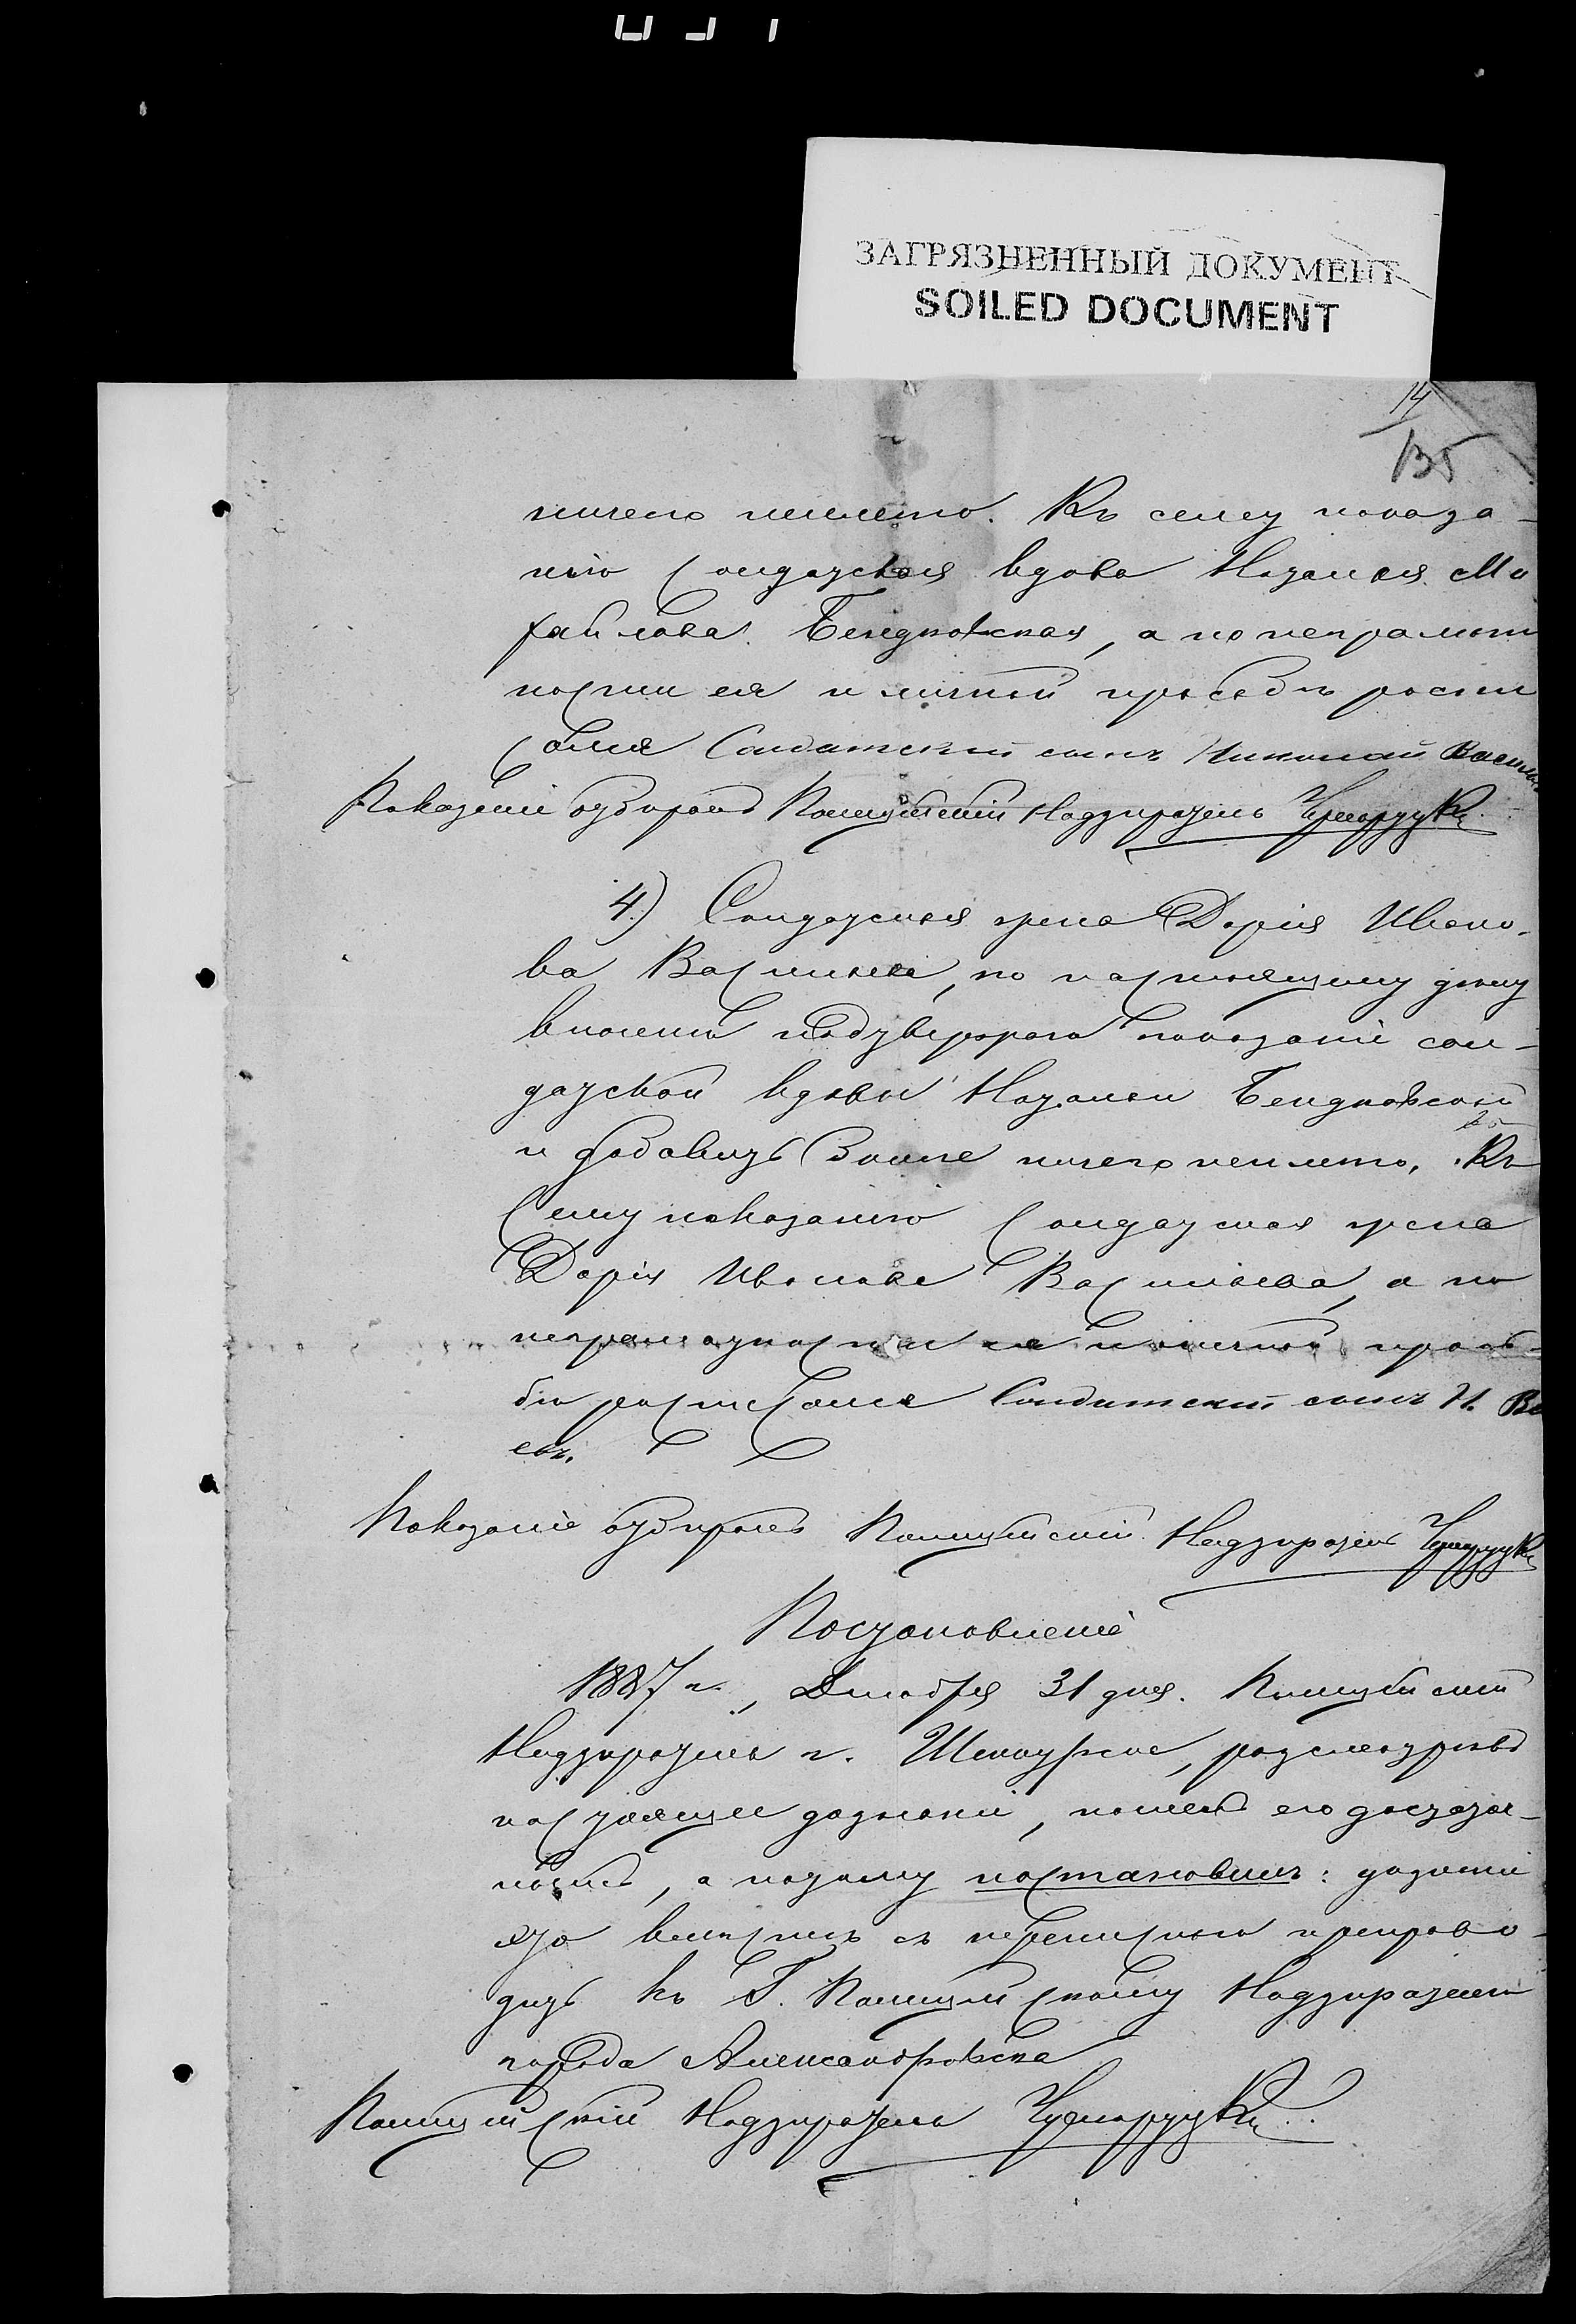 ЗАГРЯЗНЕННЫЙ ДОКУМЕНТ
SOILED DOCUMENT
14
ничего неимѣю. Къ сему показа-
нію солдатская вдова Наталья Ми
хайлова, а по неграмотн
ности ея и личной просьбѣ роспи
сался Солдатскій сынъ Николай Василь
Показаніе отбиралъ Полицейскій Надзиратель
4) Солдатская жена Дарья Ивано-
ва Васильева, по настоящему дѣлу
вполнѣ подтверждаю показаніе сол-
датской вдовы Натальи
и добавить болѣе ничего неимѣю. Къ
сему показанію солдатская жена
Дарья Иванова Васильева, а по
неграмотности ея и личной прось-
бѣ росписался Солдатскій сынъ Н. Ва
евъ.
Показаніе отбиралъ Полицейскій Надзиратель
Постановленіе
1887 г., Декабря 31 дня. Полицейскій
Надзиратель г. Шенкурска, разсмотрѣвъ
настоящее дознаніе, нашелъ его достаточ-
нымъ, а потому постановилъ: дознаніе
это вмѣстѣ съ перепискою препрово-
дить къ Г. Полицейскому Надзирателю
города Александровска
Полицейскій Надзиратель